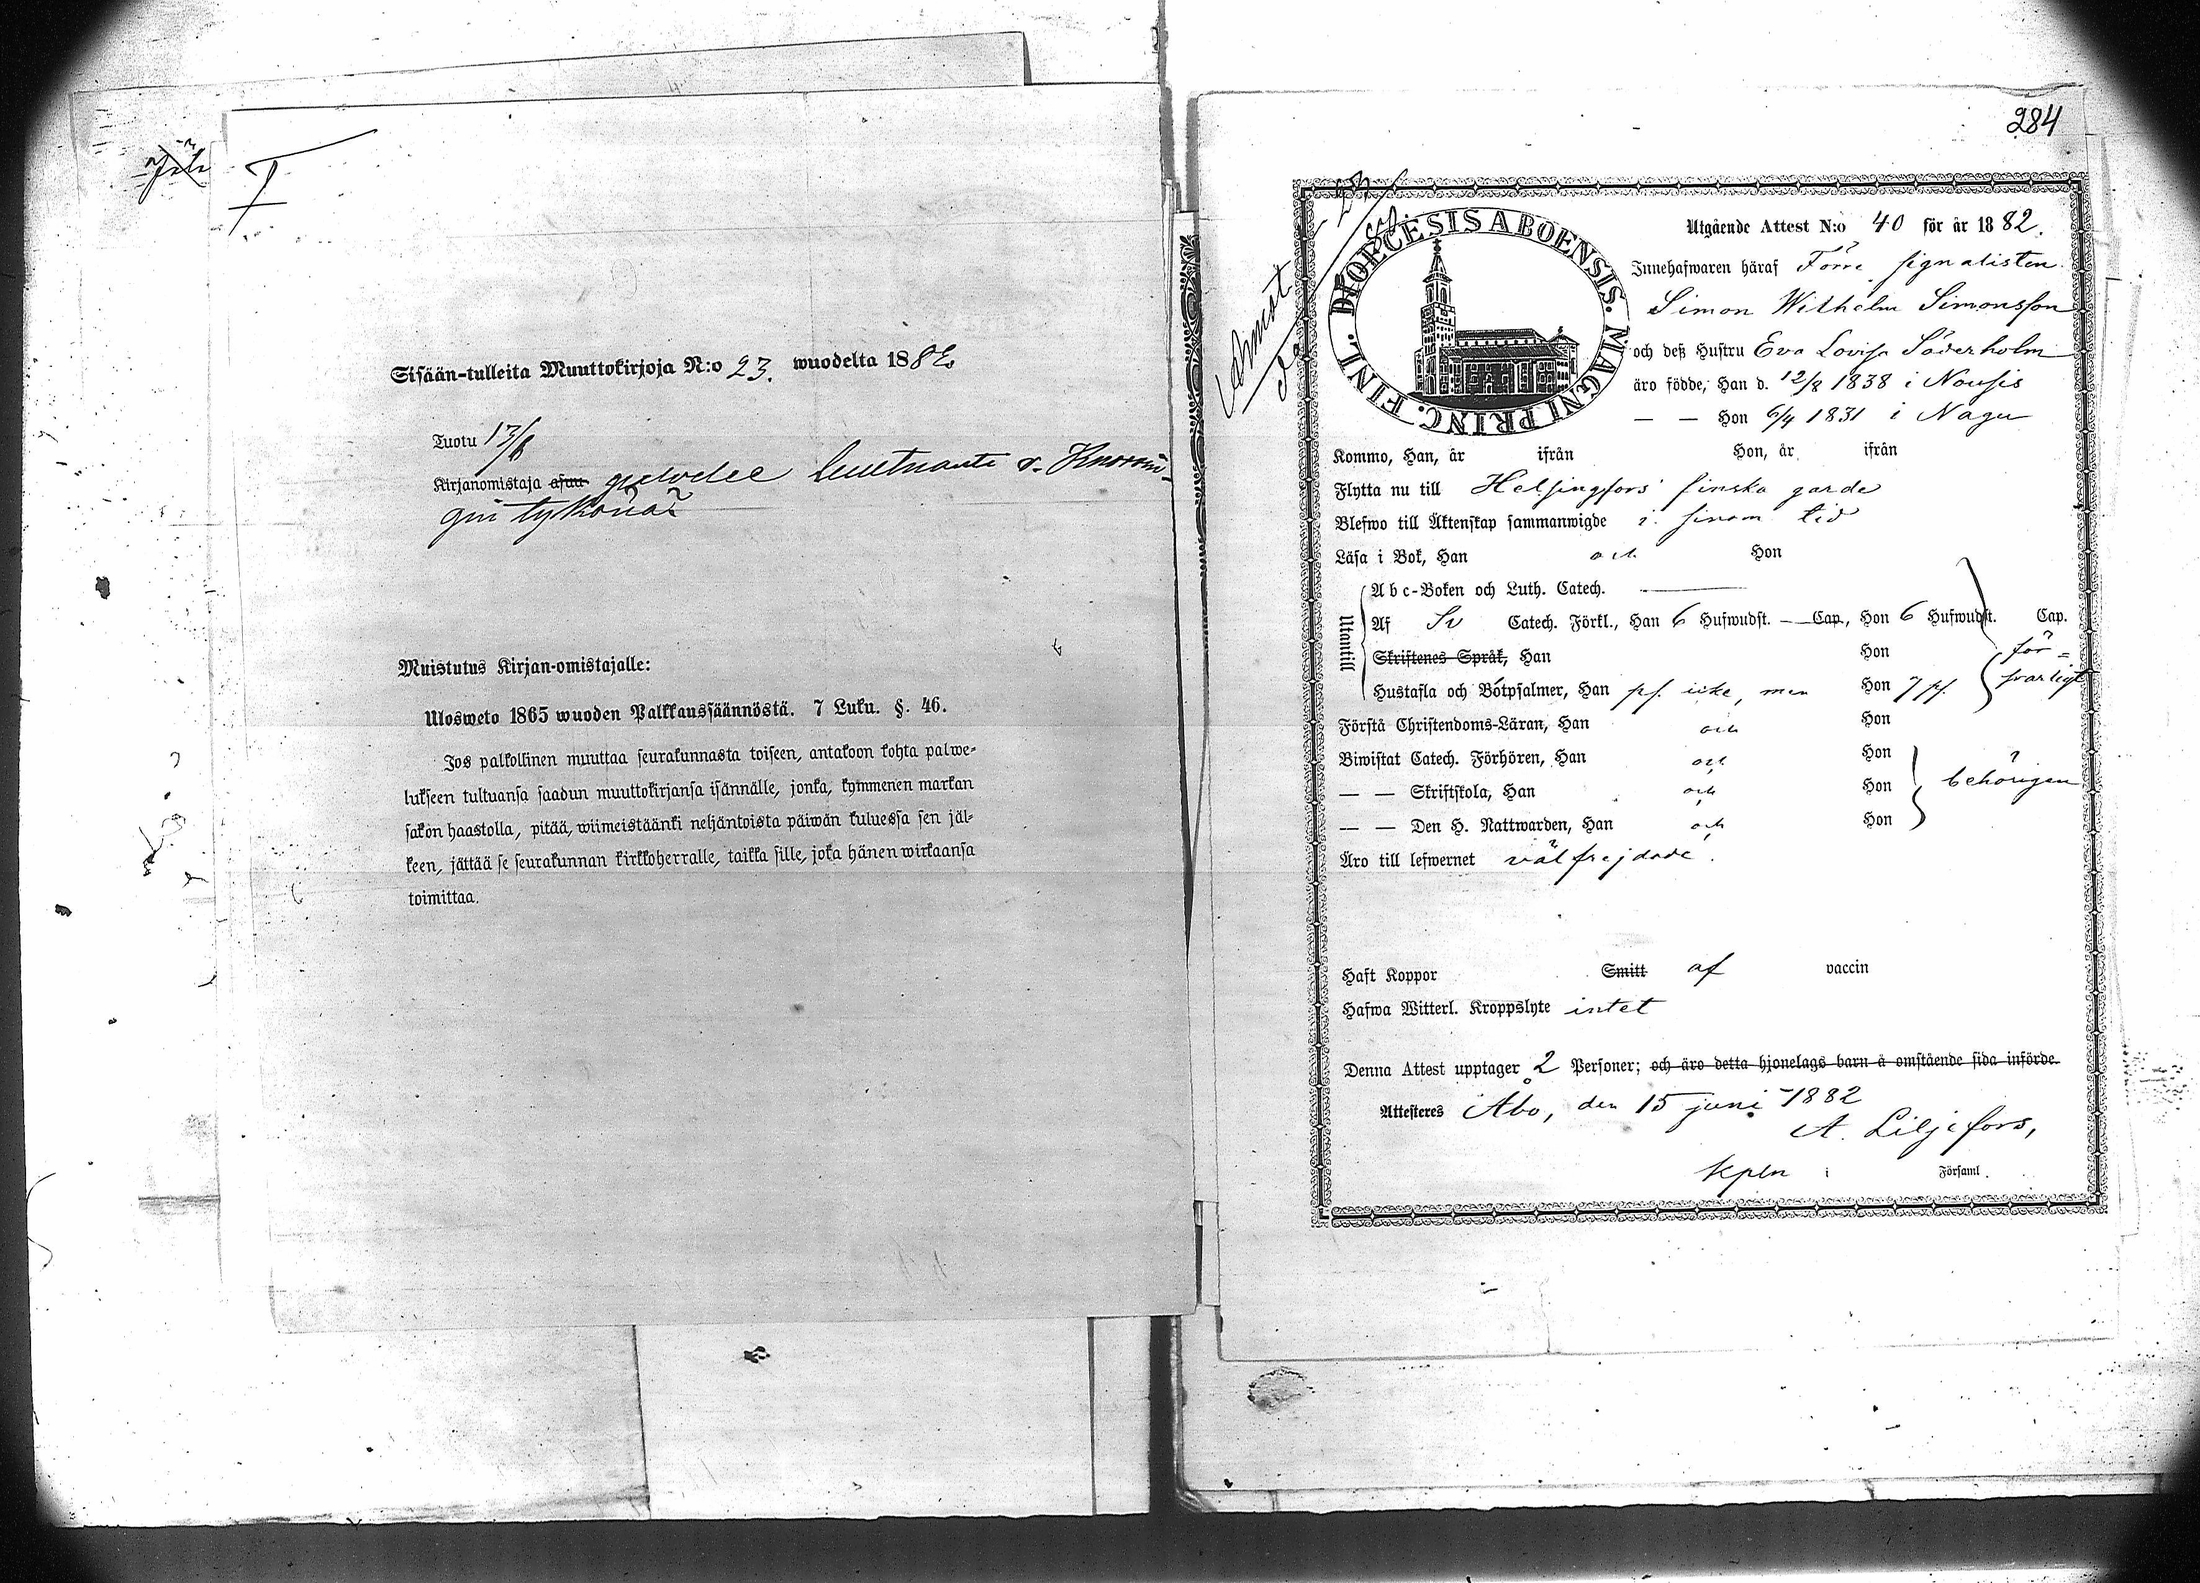 Sisään-tulleita Muuttokirjoja N:o 23. wuodelta 1882
Tuotu 13/8
Kirjanomistaja asuu
tykönä
Muistutus Kirjan-omistajalle:
Ulosweto 1865 wuoden Palkkaussäännöstä. 7 Luku. §. 46.
Jos palkollinen muuttaa seurakunnasta toiseen, antakoon kohta palwe-
lukseen tultuansa saadun muuttokirjansa isännälle, jonka, kymmenen markan
sakon haastolla, pitää, wiimeistäänki neljäntoista päiwän kuluessa sen jäl-
keen, jättää se seurakunnan kirkkoherralle, taikka sille, joka hänen wirkaansa
toimittaa.
284
DIOECESIS ABOENSIS. MAGNI PRINC. FINL.
Utgående Attest N:o 40 för år 1882.
Innehafwaren häraf Förre signalisten
Simon Wilhelm Simonsson
och deß Hustru Eva Lovisa Söderholm
äro födde, Han d. 12/8 1838 i Nousis
— — Hon 6/4 1831 i Nagu
Kommo, Han, år ifrån Hon, år ifrån
Flytta nu till Helsingfors finska garde
Blefwo till Äktenskap sammanwigde i sinom tid
Läsa i Bok, Han och Hon
Utantill
Abc-Boken och Luth. Catech.
Af Sv Catech. Förkl., Han 6 Hufwudst. — Cap., Hon 6 Hufwudst. Cap.
Skriftenes Språk, Han Hon för=
Hustafla och Botpsalmer, Han ps. icke, men Hon 7 ps. svarligt
Förstå Christendoms-Läran, Han och Hon
Biwistat Catech. Förhören, Han och Hon
— — Skriftskola, Han och Hon behörigen
— — Den H. Nattwarden, Han och Hon
Äro till lefwernet välfrejdade.
Haft Koppor Smitt af vaccin
Hafwa Witterl. Kroppslyte intet
Denna Attest upptager 2 Personer; och äro detta hjonelags barn å omstående sida införde.
Attesteres Åbo, den 15 juni 1882
A. Liljefors,
kpln i Församl.